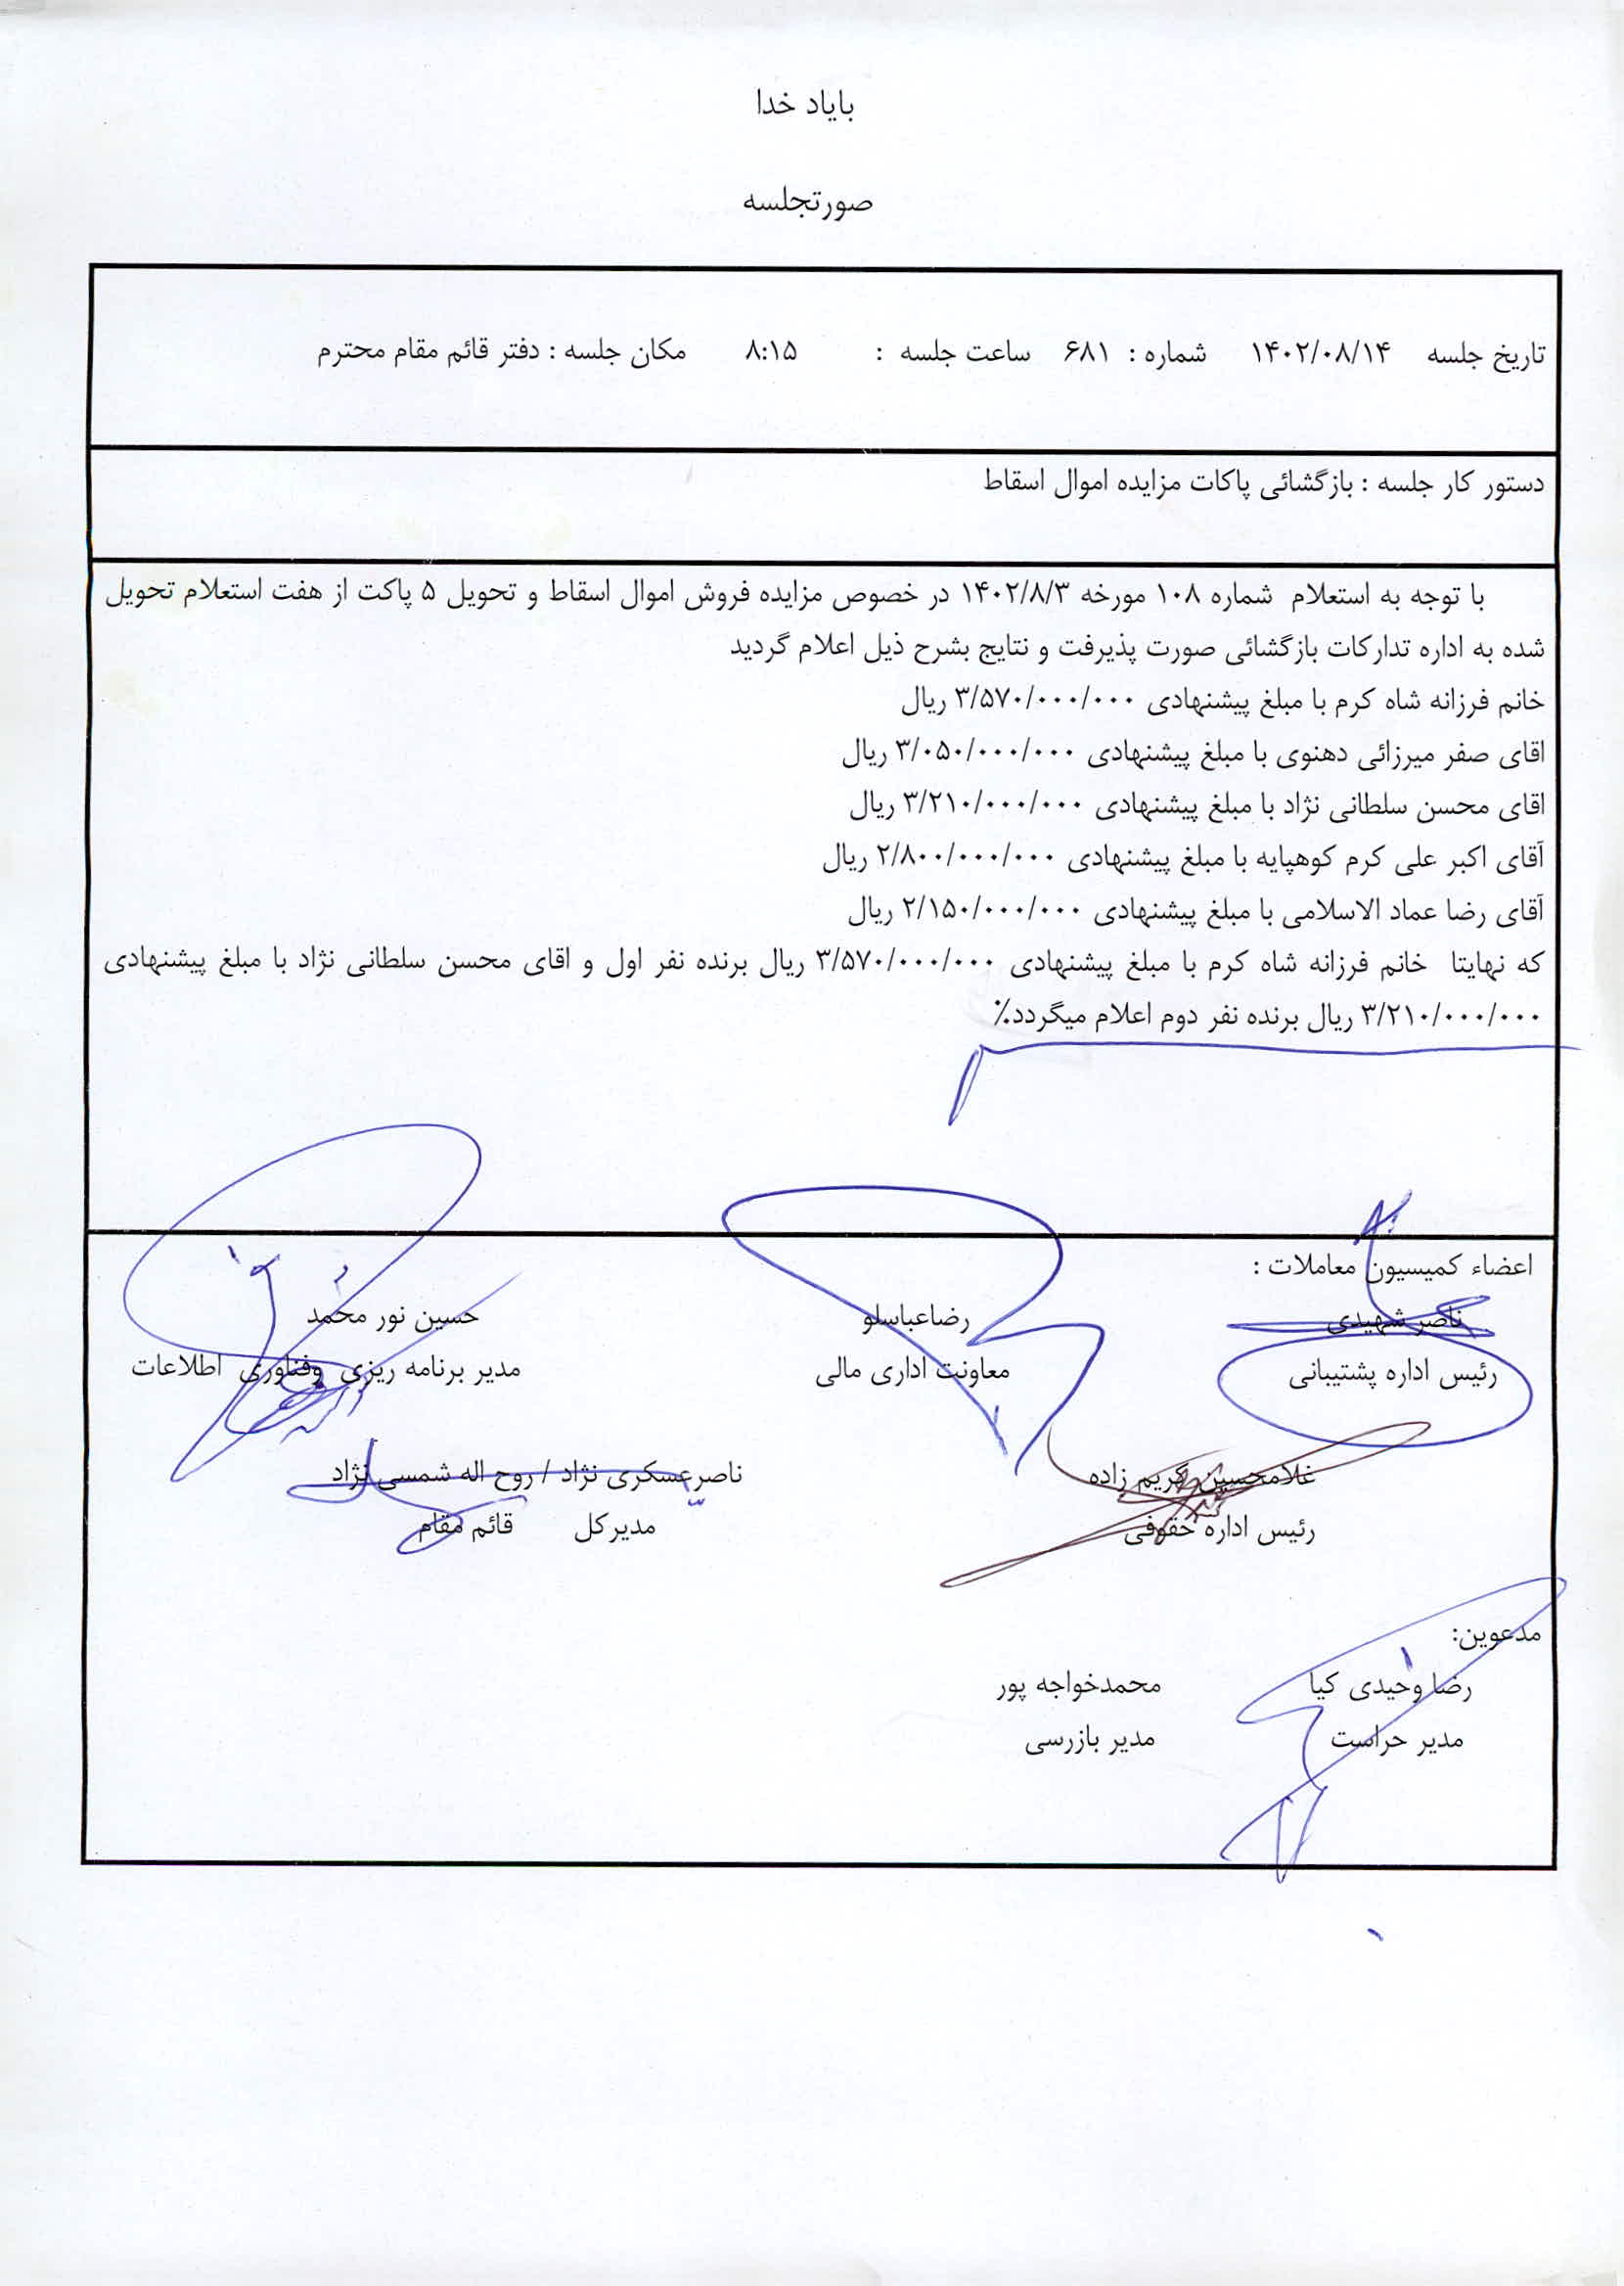 بایاد خدا
صورتجلسه
تاریخ جلسه ۱۴۰۲/۰۸/۱۴ شماره : ۶۸۱ ساعت جلسه : ۸:۱۵ مکان جلسه : دفتر قائم مقام محترم
دستور کار جلسه : بازگشائی پاکات مزایده اموال اسقاط
با توجه به استعلام شماره ۱۰۸ مورخه ۱۴۰۲/۸/۳ در خصوص مزایده فروش اموال اسقاط و تحویل ۵ پاکت از هفت استعلام تحویل
شده به اداره تدارکات بازگشائی صورت پذیرفت و نتایج بشرح ذیل اعلام گردید
خانم فرزانه شاه کرم با مبلغ پیشنهادی ۳/۵۷۰/۰۰۰/۰۰۰ ریال
اقای صفر میرزائی دهنوی با مبلغ پیشنهادی ۳/۰۵۰/۰۰۰/۰۰۰ ریال
اقای محسن سلطانی نژاد با مبلغ پیشنهادی ۳/۲۱۰/۰۰۰/۰۰۰ ریال
آقای اکبر علی کرم کوهپایه با مبلغ پیشنهادی ۲/۸۰۰/۰۰۰/۰۰۰ ریال
آقای رضا عماد الاسلامی با مبلغ پیشنهادی ۲/۱۵۰/۰۰۰/۰۰۰ ریال
که نهایتا خانم فرزانه شاه کرم با مبلغ پیشنهادی ۳/۵۷۰/۰۰۰/۰۰۰ ریال برنده نفر اول و اقای محسن سلطانی نژاد با مبلغ پیشنهادی
۳/۲۱۰/۰۰۰/۰۰۰ ریال برنده نفر دوم اعلام میگردد٪
اعضاء کمیسیون معاملات :
ناصر شهیدی رضاعباسلو حسین نور محمد
رئیس اداره پشتیبانی معاونت اداری مالی مدیر برنامه ریزی وفناوری اطلاعات
غلامحسین کریم زاده ناصرعسکری نژاد / روح اله شمسی نژاد
رئیس اداره حقوقی مدیرکل قائم مقام
مدعوین:
رضا وحیدی کیا محمدخواجه پور
مدیر حراست مدیر بازرسی